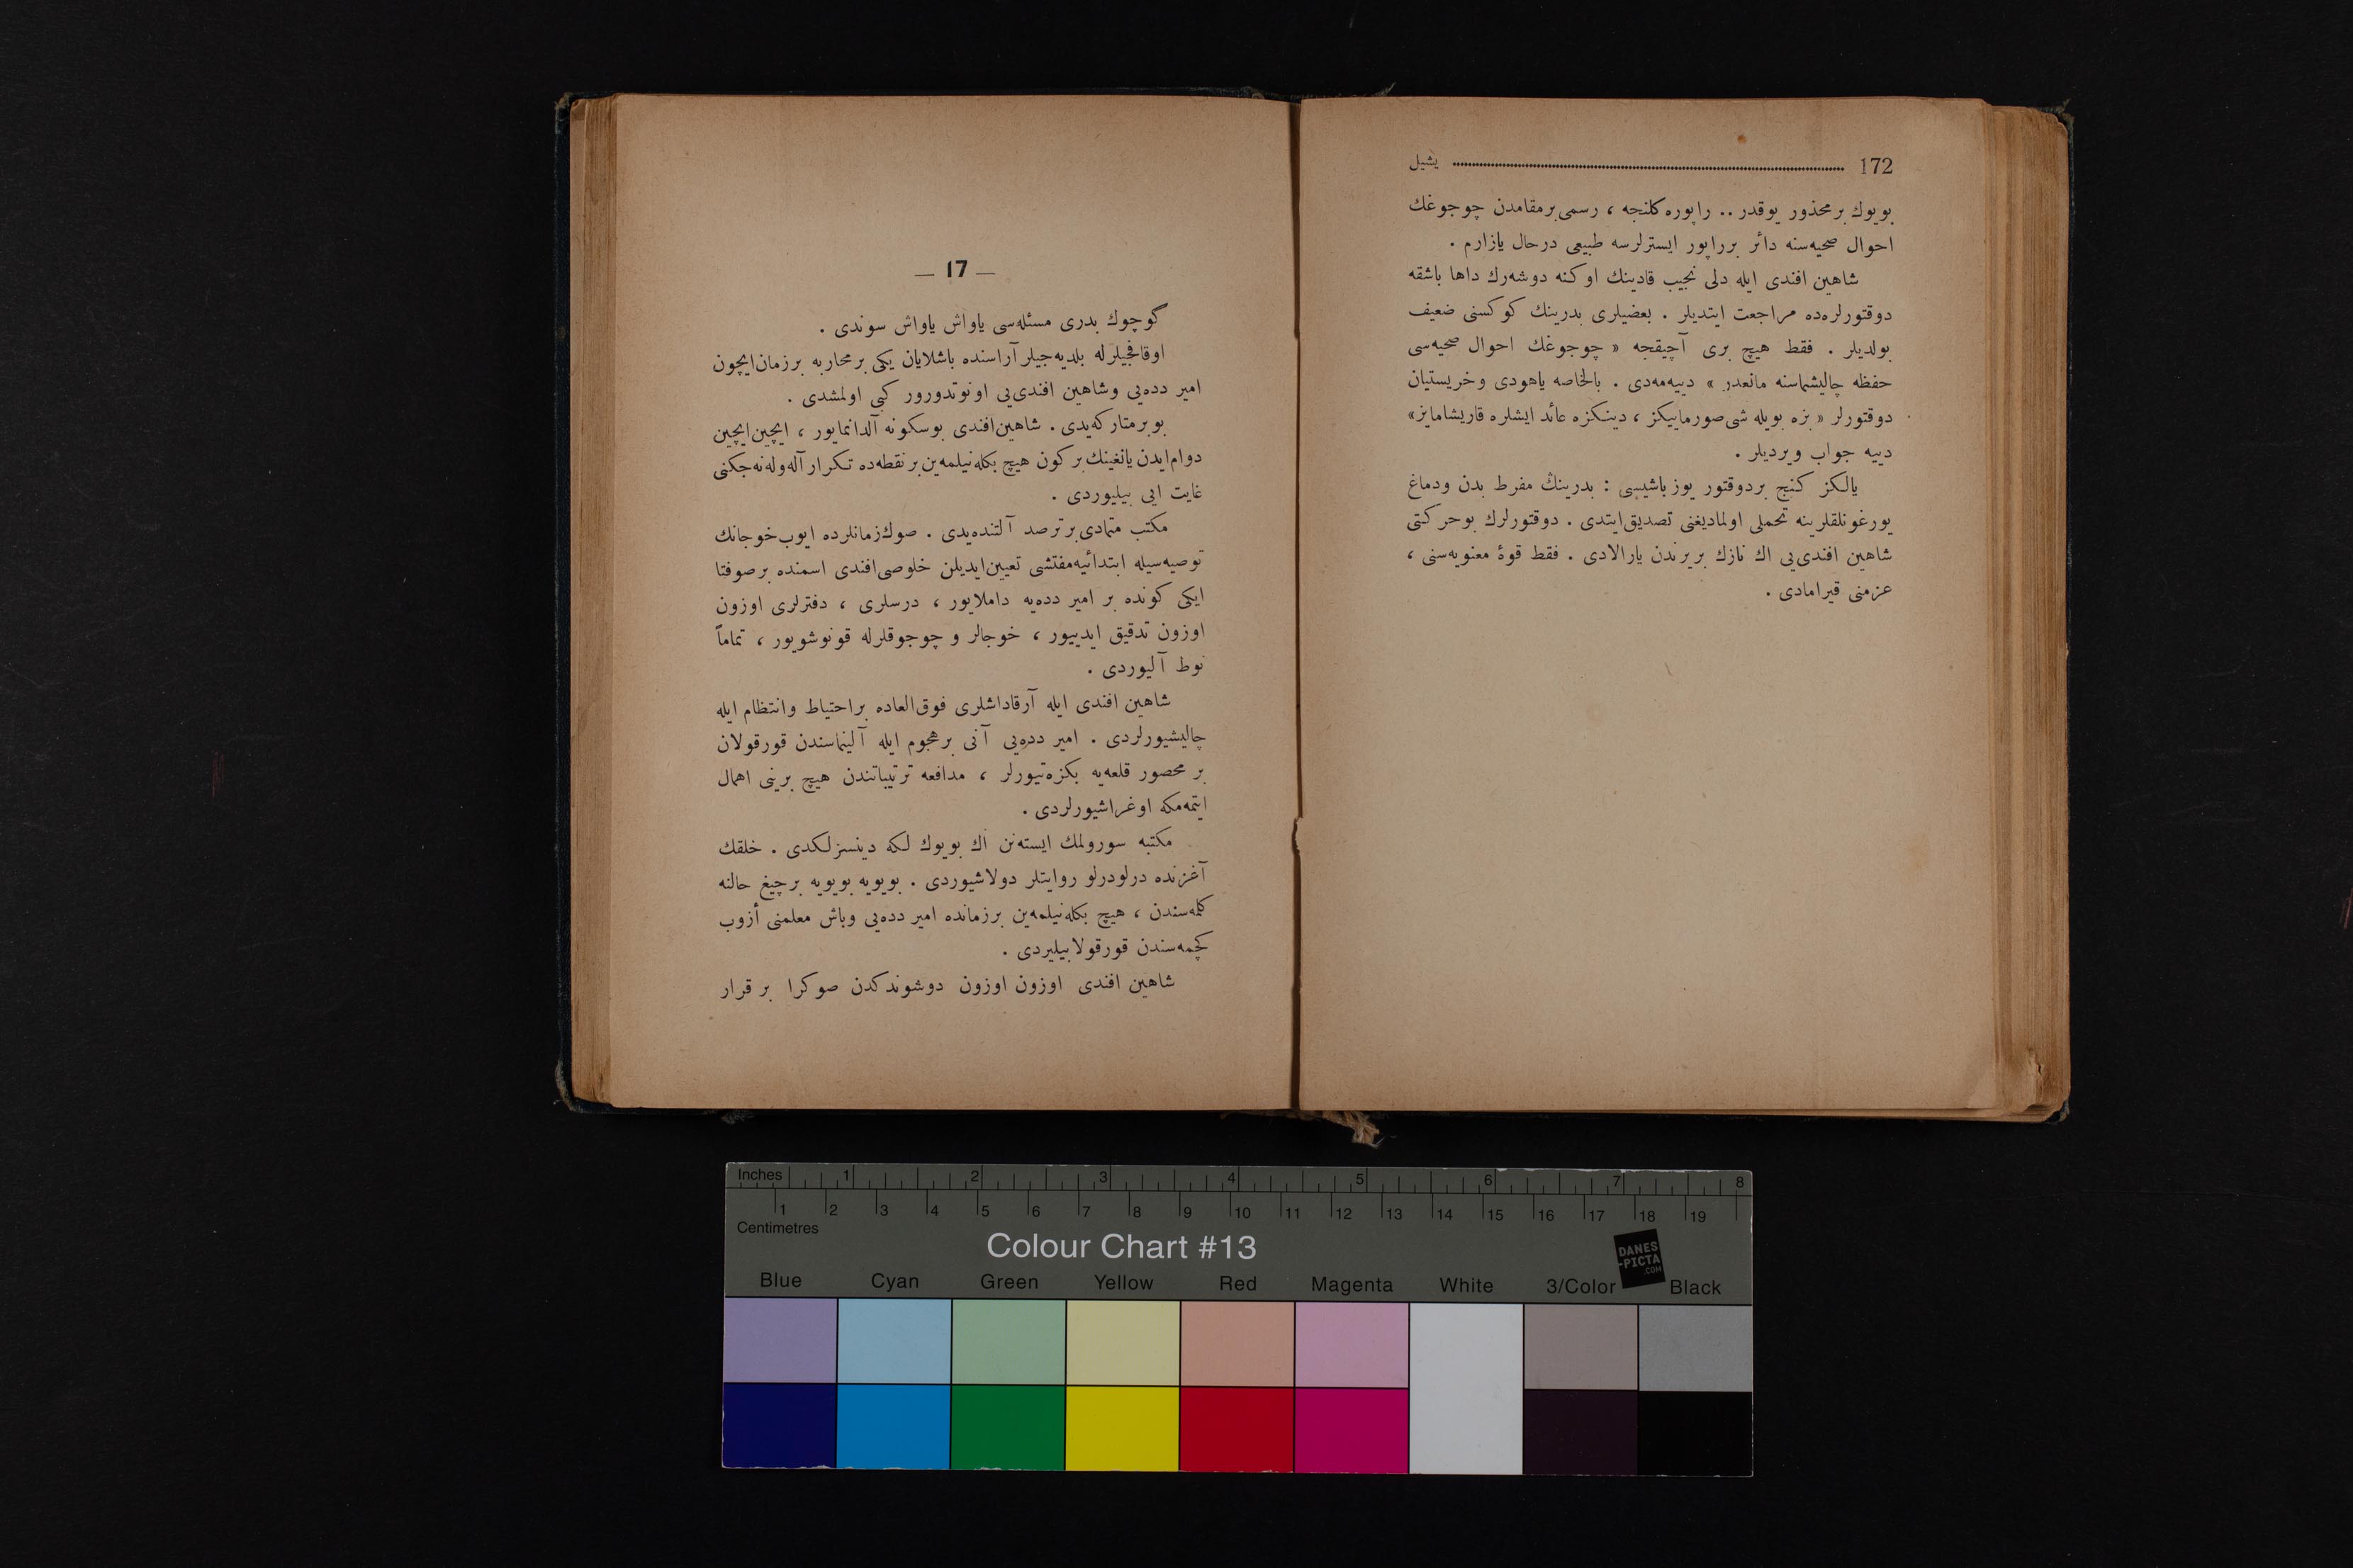 172 يشيل
بويوك بر محذور يوقدر .. راپوره كلنجه ، رسمی بر مقامدن چوجوغك
احوال صحيه‌سنه دائر بر راپور ايسترلرسه طبيعی درحال يازارم .
شاهين افندی ايله دلی نجيب قادينك اوكنه دوشه‌رك داها باشقه
دوقتورلره‌ده مراجعت ايتديلر . بعضيلری بدرينك كوكسنی ضعيف
بولديلر . فقط هيچ بری آچيقجه « چوجوغك احوال صحيه‌سی
حفظه چاليشماسنه مانعدر » دييه‌مه‌دی . بالخاصه ياهودی وخريستيان
دوقتورلر « بزه بويله شی صورماييكز ، دينكزه عائد ايشلره قاريشامايز»
دييه جواب ويرديلر .
يالكز كنج بر دوقتور يوز باشيسی : بدرينڭ مفرط بدن ودماغ
يورغونلقلرينه تحملی اولماديغنی تصديق ايتدی . دوقتورلرك بو حركتی
شاهين افندی‌يی اك نازك بر يرندن يارالادی . فقط قوهٔ معنويه‌سنی ،
عزمنی قيرامادی .
— 17 —
گوچوك بدری مسئله‌سی ياواش ياواش سوندی .
اوقافجيلرله بلديه‌جيلر آراسنده باشلايان يكی بر محاربه بر زمان ايچون
امير دده‌يی وشاهين افندی‌يی اونوتدورور كبی اولمشدی .
بو بر متاركه‌يدی . شاهين افندی بو سكونه آلدانمايور ، ايچين ايچين
دوام ايدن يانغينك بر كون هيچ بكله‌نيلمه‌ين بر نقطه‌ده تكرار آله‌وله‌نه‌جكنی
غايت ايی بيليوردی .
مكتب متمادی بر ترصد آلتنده‌يدی . صوك زمانلرده ايوب خوجانك
توصيه‌سيله ابتدائيه مفتشی تعيين ايديلن خلوصی افندی اسمنده بر صوفتا
ايكی كونده بر امير دده‌يه داملايور ، درسلری ، دفترلری اوزون
اوزون تدقيق ايدييور ، خوجالر و چوجوقلرله قونوشويور ، تماماً
نوط آليوردی .
شاهين افندی ايله آرقاداشلری فوق‌العاده بر احتياط وانتظام ايله
چاليشيورلردی . امير دده‌يی آنی بر هجوم ايله آلينماسندن قورقولان
بر محصور قلعه‌يه بكزه‌تيورلر ، مدافعه ترتيباتندن هيچ برينی اهمال
ايتمه‌مكه اوغراشيورلردی .
مكتبه سورولمك ايسته‌نن اك بويوك لكه دينسزلكدی . خلقك
آغزنده درلو درلو روايتلر دولاشيوردی . بويويه بويويه بر چيغ حالنه
كلمه‌سندن ، هيچ بكله‌نيلمه‌ين بر زمانده امير دده‌يی وباش معلمنی أزوب
كچمه‌سندن قورقولابيليردی .
شاهين افندی اوزون اوزون دوشوندكدن صوكرا بر قرار
Inches 1 2 3 4 5 6 7 8
1 2 3 4 5 6 7 8 9 10 11 12 13 14 15 16 17 18 19
Centimetres
Colour Chart #13
DANES
-PICTA
.COM
Blue Cyan Green Yellow Red Magenta White 3/Color Black